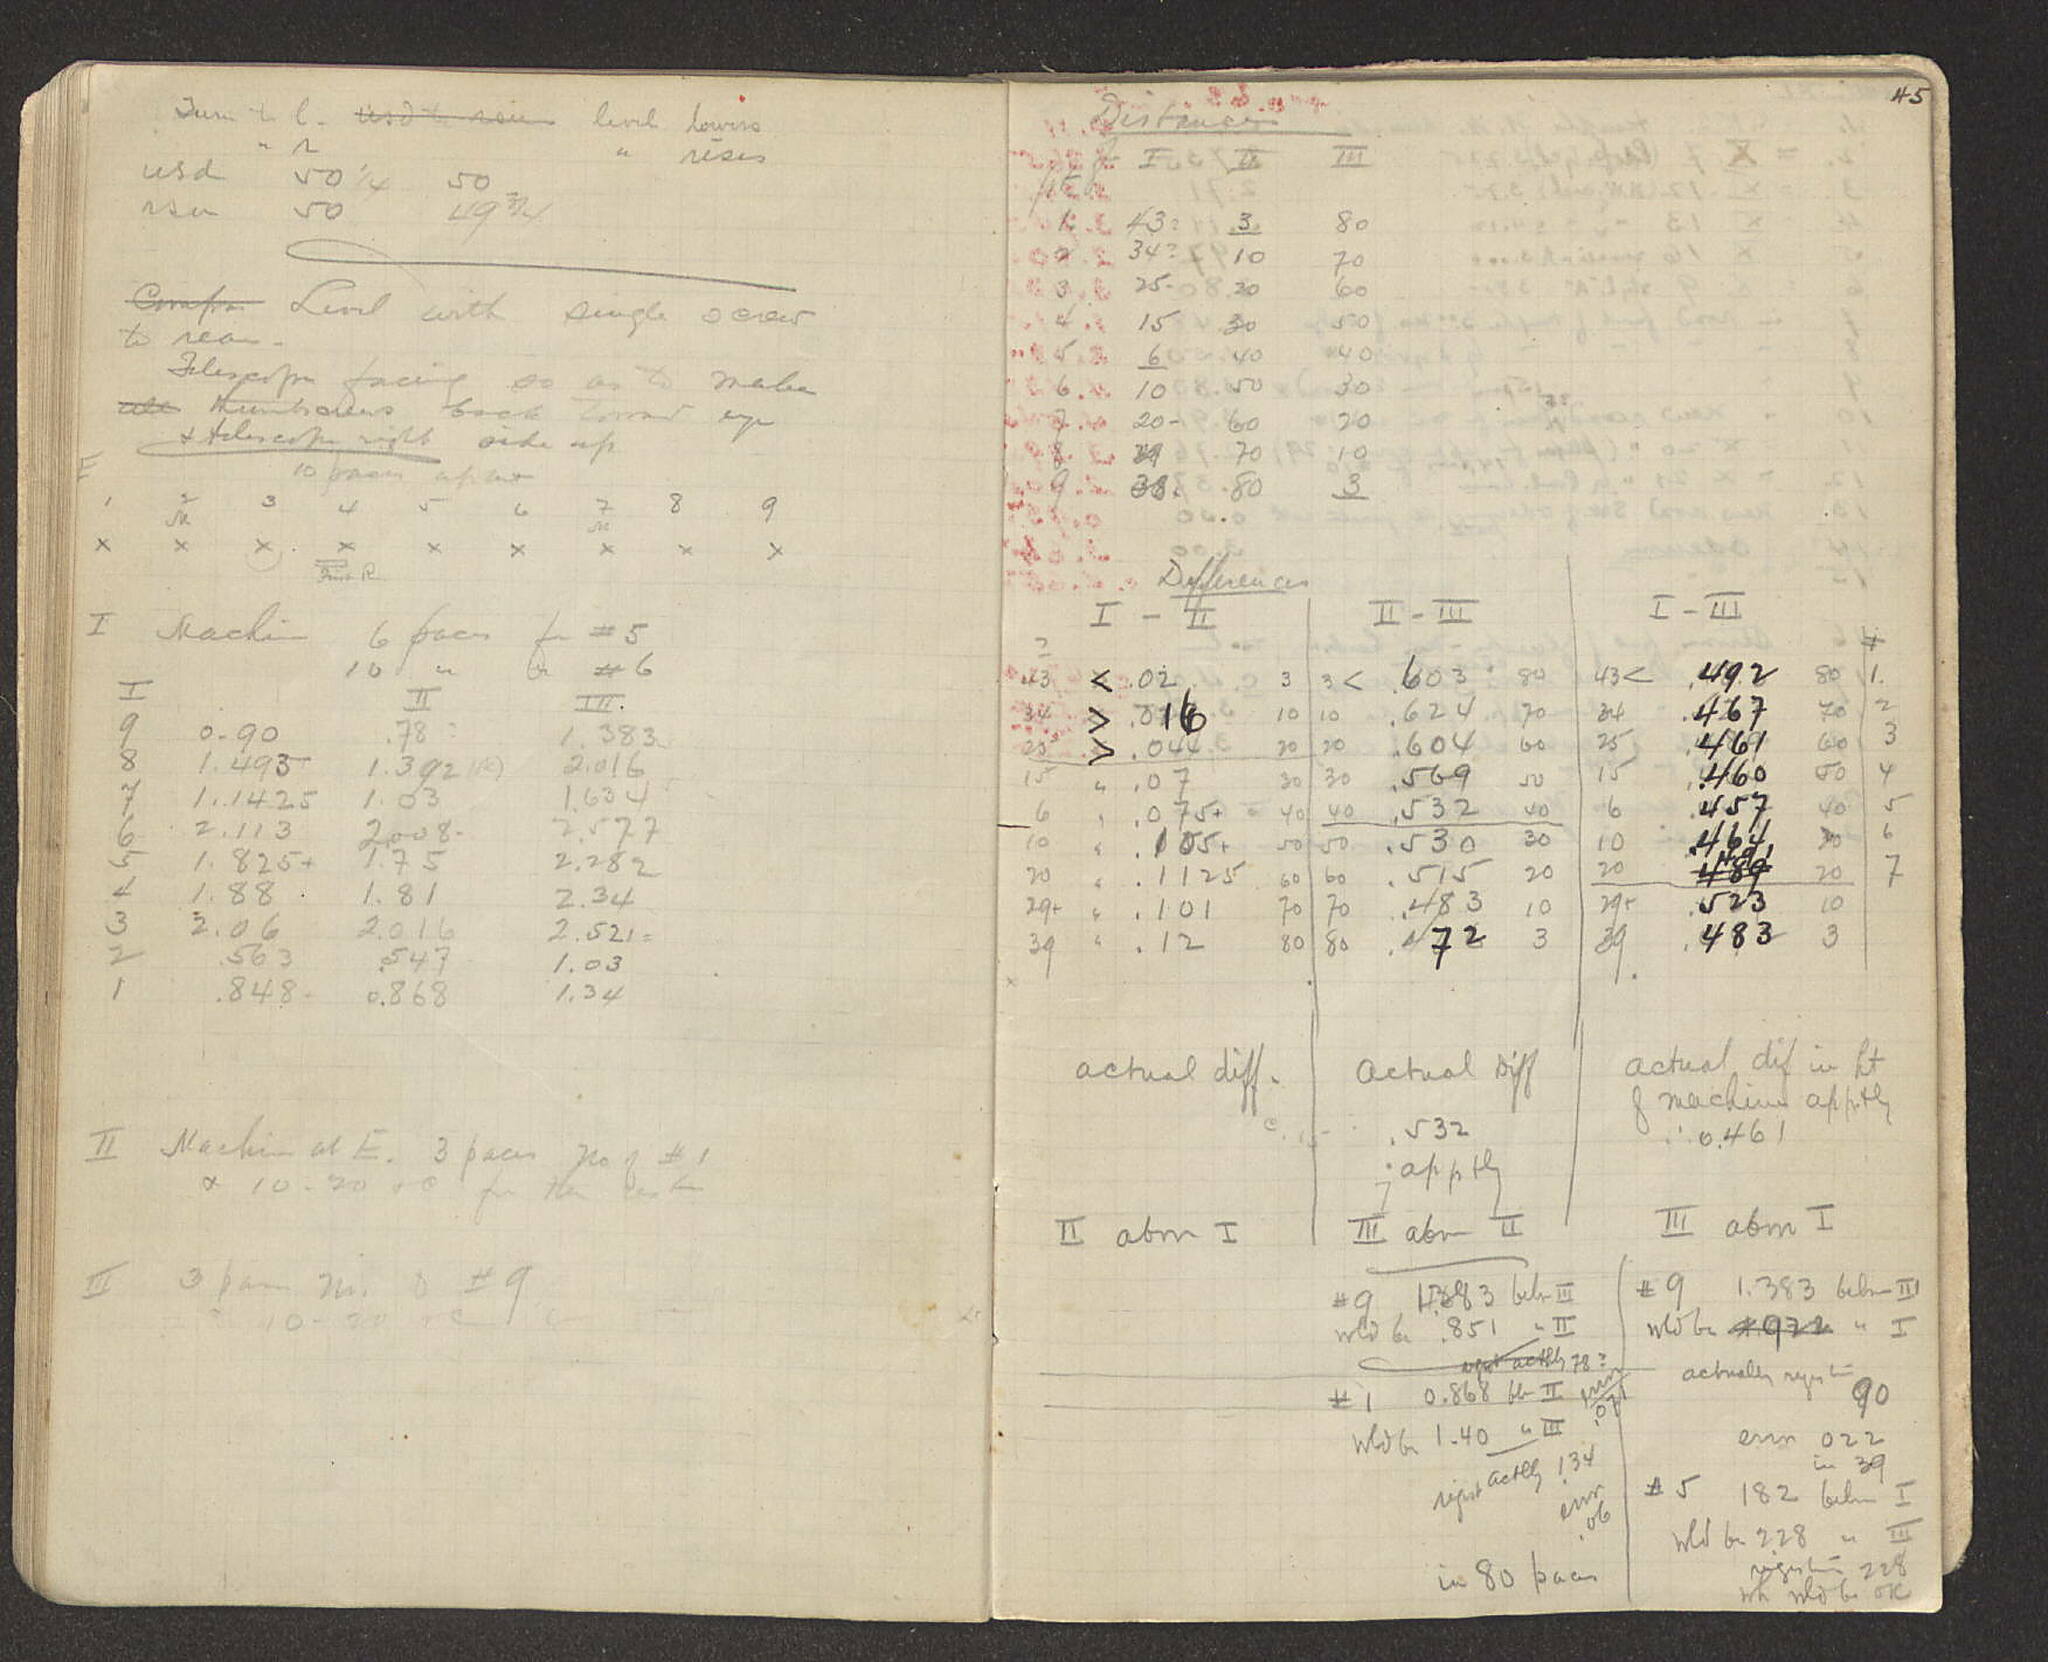 Turn to l. usd to rsu level lowers
" r " rises
usd 50 1/4 50
rsu 50 49 3/4
Compa Level with single screw
to rear.
Telescope facing so as to make
all thumbscrews back toward eye
& telescope right side up
E 10 paces apart
1 2 3 4 5 6 7 8 9
x x x x x x x x x
I Machine 6 paces fr #5
10 " fr #6
I II III
9 0.90 .78 1.383
8 1.495 1.392 2.016
7 1.1425 1.03 1.634
6 2.113 2.008 2.577
5 1.825+ 1.75 2.282
4 1.88 1.81 2.34
3 2.06 2.016 2.521
2 .563 .547 1.03
1 .848 0.868 1.34
II Machine at E. 3 paces no of #1
& 10-20 etc for the rest
III 3 paces no. of #9
10-20 etc
45
Distances
I II III
1. 43? 3 80
2 34? 10 70
3 25 20 60
4 15 30 50
5 6 40 40
6 10 50 30
7 20 60 20
8 29 70 10
9 38. 80 3
Differences
I - II II - III I - III
? #
43 < .02 3 3 < .603 80 43 < .492 80 1.
34 > .016 10 10 .624 70 34 .467 70 2
25 > .044 20 20 .604 60 25 .461 60 3
15 " .07 30 30 .569 50 15 .460 50 4
6 " .075+ 40 40 .532 40 6 .457 40 5
10 " .105+ 50 50 .530 30 10 .464 30 6
20 " .1125 60 60 .515 20 20 .489 .491 20 7
29+ " .101 70 70 .483 10 29+ .523 10
39 " .12 80 80 .472 3 39 .483 3
actual diff. Actual Diff actual dif in ht
of machine apptly
.532 ∴ 0.461
apptly
II abov I III abov II III abov I
#9 1.383 belo III
wld be .851 " II
regist actlly 78?
#1 0.868 blo II error .071
wld be 1.40 " III
regist actlly 1.34
error .06
in 80 paces
#9 1.383 belo III
wld be .922 " I
actually registers
90
error 022
in 39
#5 182 belo I
wld be 228 " III
registers 228
wh wld be OK